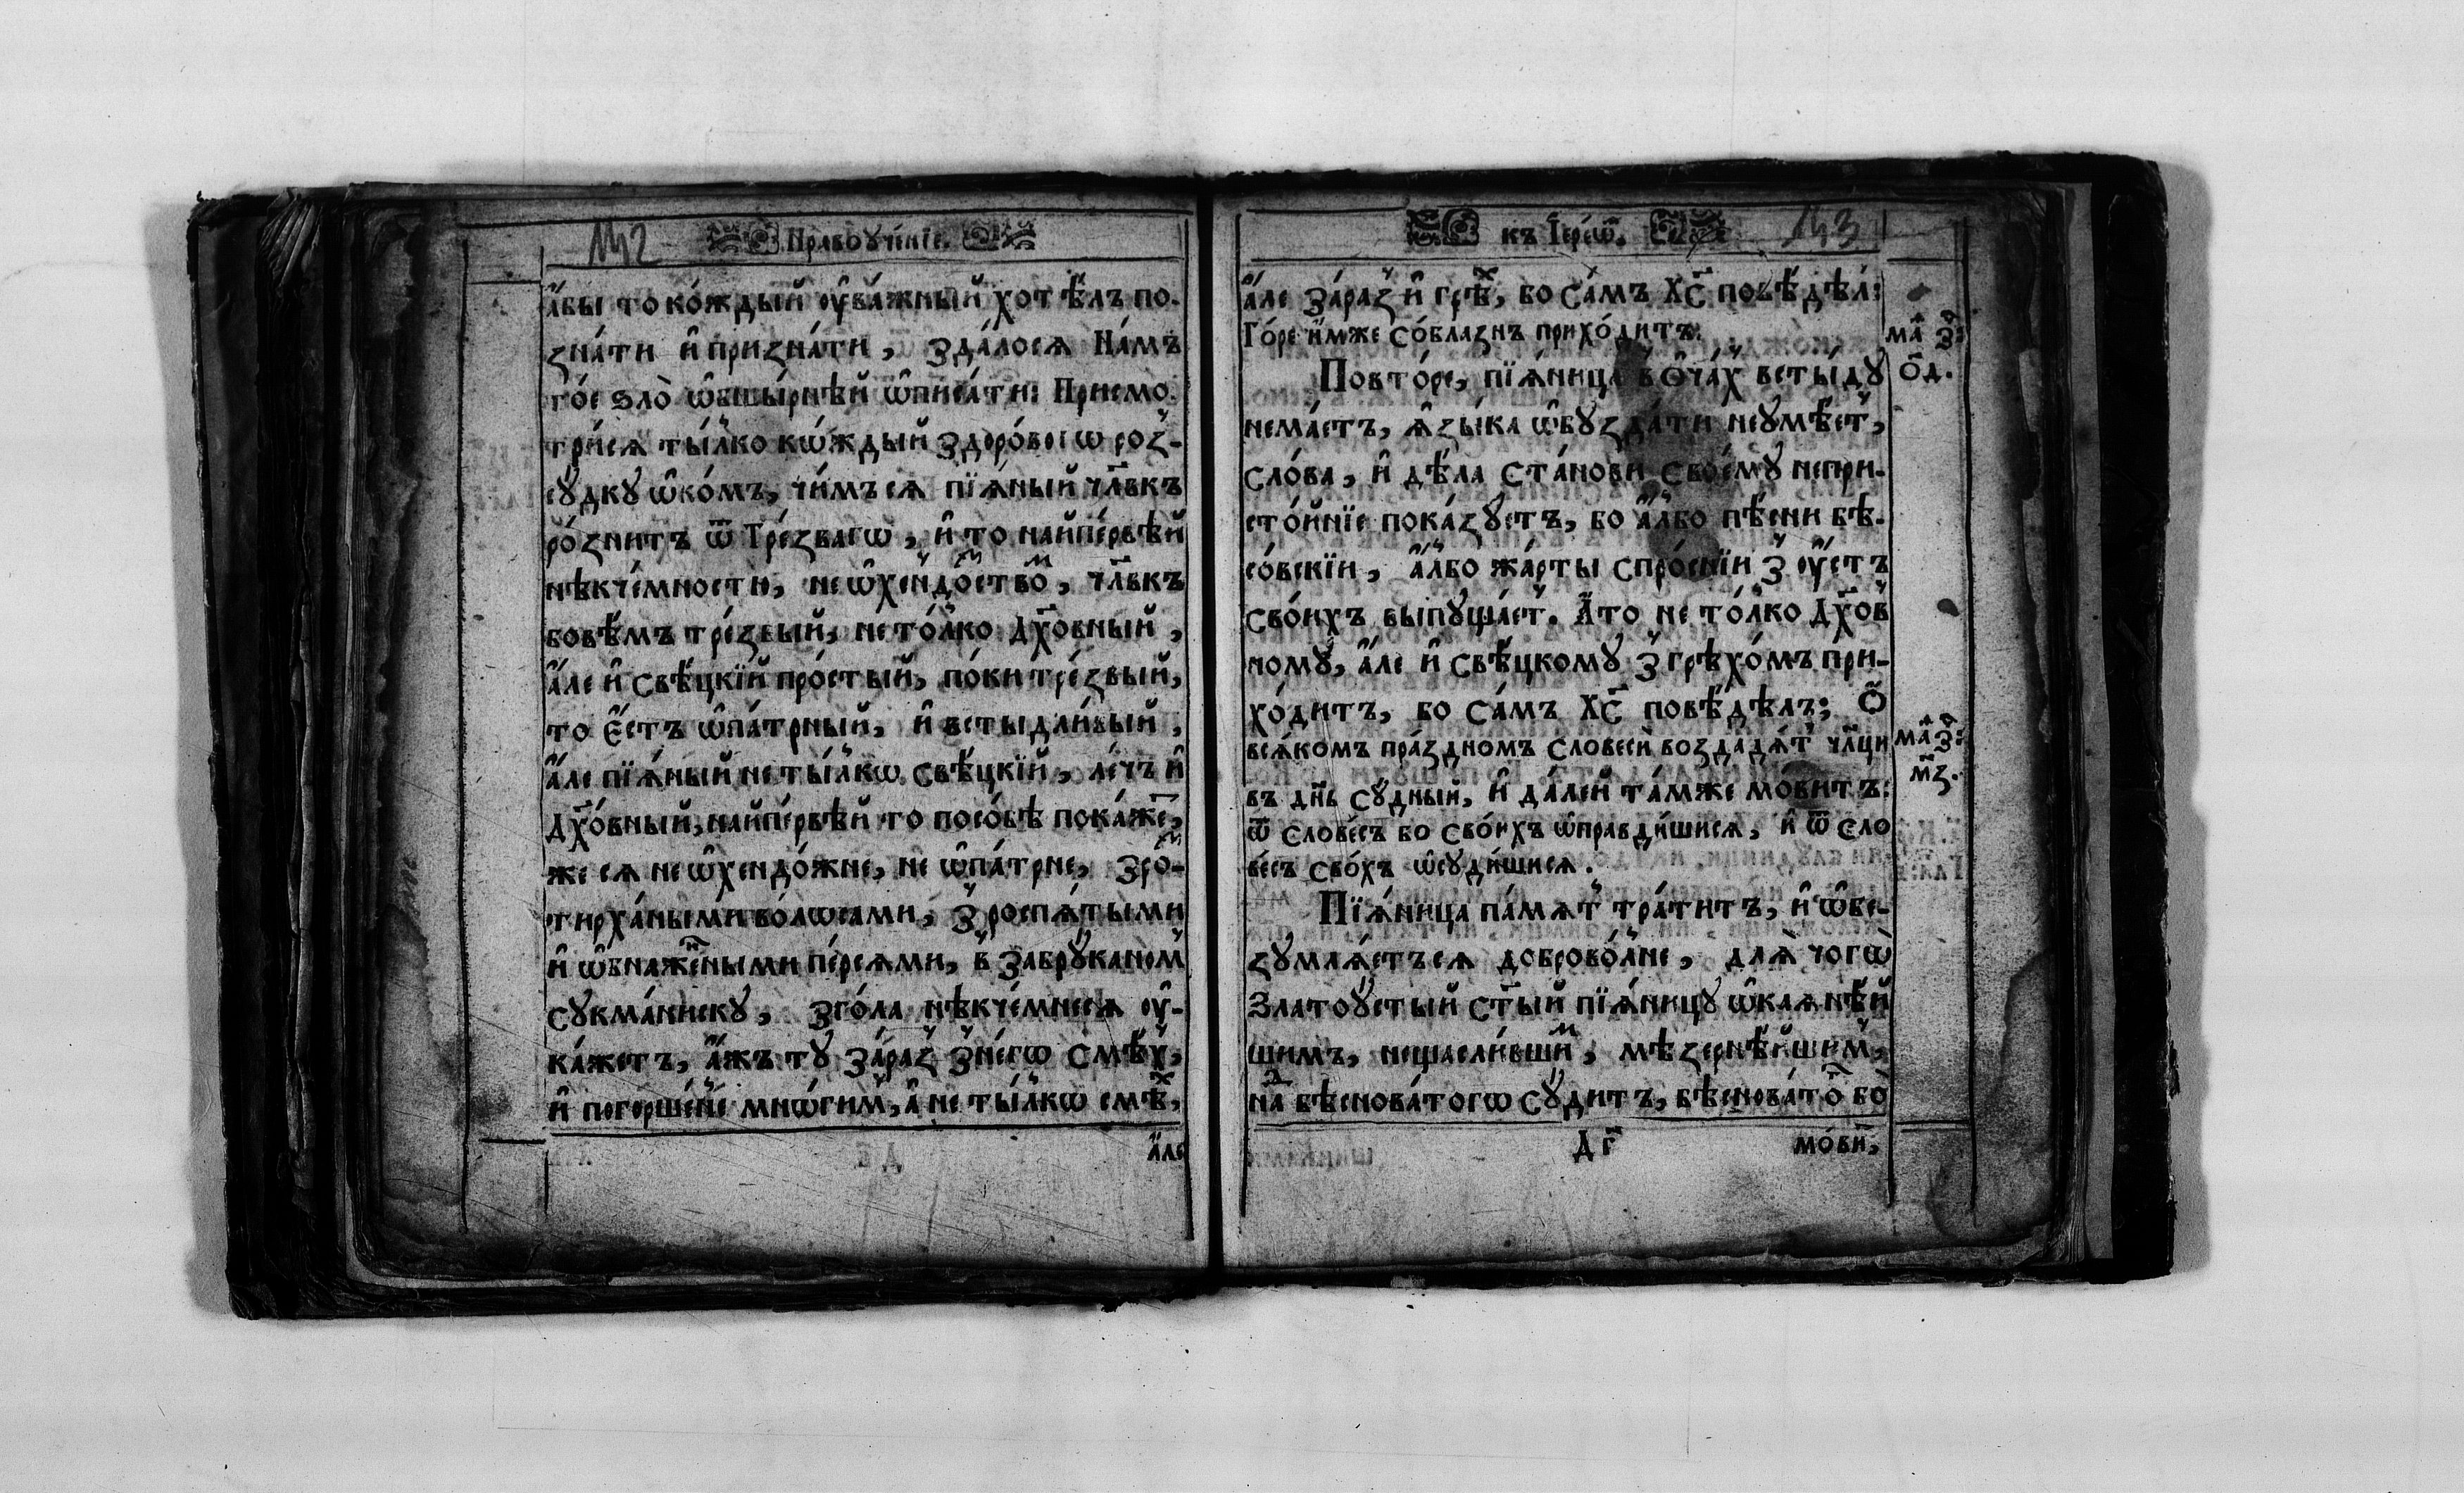 142
Нравоꙋче́нїе.
а҆́бы то ко́ждый оу҆ва́жный хотѣ́лъ по-
ꙁна́ти и҆ приꙁна́ти, зда́лося На́мъ
то́е ѕло̀ ѡ҆бши́рнѣй ѡ҆писа́ти: Присмо-
три́ся ты́лко кѡ́ждый здоро́вогѡ роꙁ-
сꙋ́дкꙋ ѡ҆́комъ, чи́мъ ся пїѧ́ный чл҃вкъ
ро́ꙁнитъ ѿ Тре́ꙁвагѡ, и҆ то найпе́рвѣй
нѣкче́мности, не ѡ҆хендо́ствоⷨ, чл҃вкъ
бовѣ́мъ тре́ꙁвый, не то́лко Дх҃о́вный,
а҆́ле и҆ свѣ́цкїй про́стый, по́ки тре́ꙁвый,
то є҆́стъ ѡ҆па́трный, и҆ встыдли́вый,
а҆́ле пїѧ́ный не ты́лкѡ свѣ́цкїй, ле́чъ и҆
Дх҃о́вный, найпе́рвѣй то по со́бѣ пока́жеⷮ,
же ся не ѡ҆хендо́жне, не ѡ҆па́трне, з ро-
стирха́ными во́лѡсами, з роспѧ́тыми
и҆ ѡ҆бнаже́нными пе́рсями, в забрꙋ́каномъ
сꙋкма́нискꙋ, зго́ла нѣкче́мнеся оу҆-
ка́жетъ, а҆́жъ тꙋ за́раꙁ з не́гѡ смѣ́хъ,
и҆ погорше́нїе мнѡ́гимъ, а҆ не ты́лкѡ смѣⷯ,
а҆́ле
143
къ І҆ере́ѡⷨ.
а҆́ле за́раꙁ и҆ грѣⷯ, бо са́мъ Хс҃ повѣ́дѣлъ:
Го́ре и҆́мже со́блаꙁнъ прихо́дитъ.
Маⷴ з҃:
ѻ҃д.
Повто́ре, пїѧ́ница в Ѻ҆ча́хъ встыдꙋ̀
нема́етъ, ѧ҆ꙁы́ка ѡ҆бꙋꙁда́ти не ꙋмѣ́етъ,
сло́ва, и҆ дѣ́ла ста́нови своемꙋ̀ непри-
сто́йнїе пока́ꙁꙋетъ, бо а҆́лбо пѣ́сни бѣ-
со́вскїи, а҆́лбо жа́рты спро́снїи з оу҆́стъ
свои́хъ выпꙋща́етъ. А҆ то не то́лко Дх҃ов
номꙋ̀, а҆́ле и҆ свѣ́цкомꙋ з грѣхо́мъ при-
хо́дитъ, бо са́мъ Хс҃ повѣ́дѣлъ; Ѽ
всѧ́комъ пра́ꙁдномъ словесѝ воꙁдадѧ́тъ чл҃ци
Маⷴ з҃:
м҃ꙁ.
въ дн҃ь сꙋ́дный, и҆ да́лей та́мже мо́витъ:
ѿ слове́съ бо свои́хъ ѡ҆правди́шися, и҆ ѿ сло
ве́съ сво́хъ ѡ҆сꙋди́шися.
Пїѧ́ница па́мѧт тра́титъ, и҆ ѡ҆бе-
ꙁꙋмлѧ́етъ ся доброво́лне, для̀ чогѡ̀
Златоꙋ́стый ст҃ый пїѧ́ницꙋ ѡ҆каѧнѣ́й
шимъ, нещасли́вшиⷨ, мѣꙁернѣ́йшимъ,
наⷣ бѣснова́тогѡ сꙋ́дитъ, бѣснова́тоⷢ҇ бо
Дг҃
мо́виⷮ,